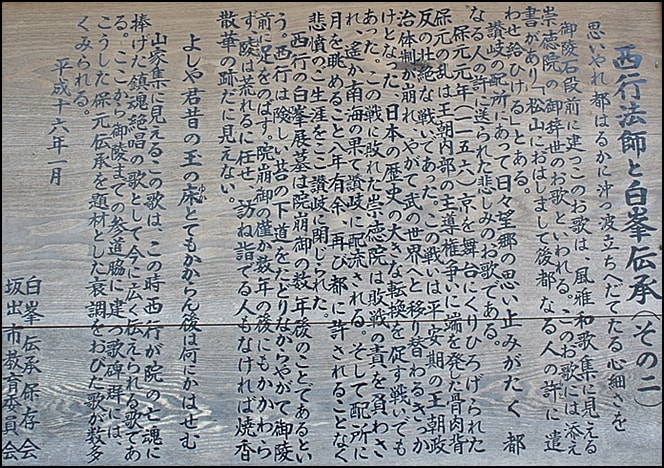 西行法師と白峯伝承(その二)
思いやれ都はるかに沖つ波立ちへだてたる心細さを
御陵石段前に建つこのお歌は、風雅和歌集に見える
崇徳院の御辞世のお歌といわれる。このお歌には添え
書があり「松山におはしまして後都なる人の許に遣
わせ給ひける」とある。
讃岐の配所にあって日々望郷の思い止みがたく都
なる人の許に送られた悲しみのお歌である。
保元元年(一一五六)京を舞台にくりひろげられた
保元の乱は王朝内部の主導権争いに端を発した骨肉背
反の壮絶な戦いであった。この戦いは平安期の王朝政
治体制が崩れ、やがて武の世界へと移り替わるきっか
けとなった、日本の歴史の大きな転換を促す戦いでも
あった。この戦に敗れた崇徳院は敗戦の責を負わさ
れ、遥か南海の果て讃岐に配流される。そして配所に
月を眺めること八年有余、再び都に許されることなく
悲憤のご生涯をここ讃岐に閉じられた。
西行の白峯展墓は院崩御の数年後のことであるとい
う。西行は険しい苔の下道をたどりながらやがて御陵
前に足をのばす。院崩御の僅か数年の後にもかかわら
ず、陵は荒れるに任せ、訪ね詣でる人もなければ焼香
散華の跡だに見えない。
よしや君昔の玉の床とてもかからん後は何にかはせむ
山家集に見えるこの歌は、この時西行が院の亡魂に
捧げた鎮魂絶唱の歌として今に広く伝えられる歌であ
る。ここから御陵までの参道脇に建つ歌碑群には、
こうした保元伝承を題材とした哀調をおびた歌が数多
くみられる。
平成十六年一月
白峯伝承保存会
坂出市教育委員会